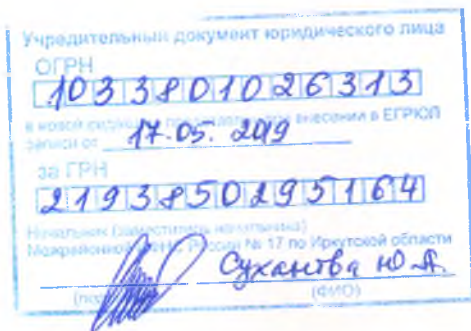 Учредительный документ юридического лица
ОГРН
1033801026313
в новой редакции представлен при внесении в ЕГРЮЛ
записи от 17.05. 2019
за ГРН
2193850295164
Начальник (заместитель начальника)
Межрайонной ИФНС России № 17 по Иркутской области
Суханова Ю.А.
(ФИО)